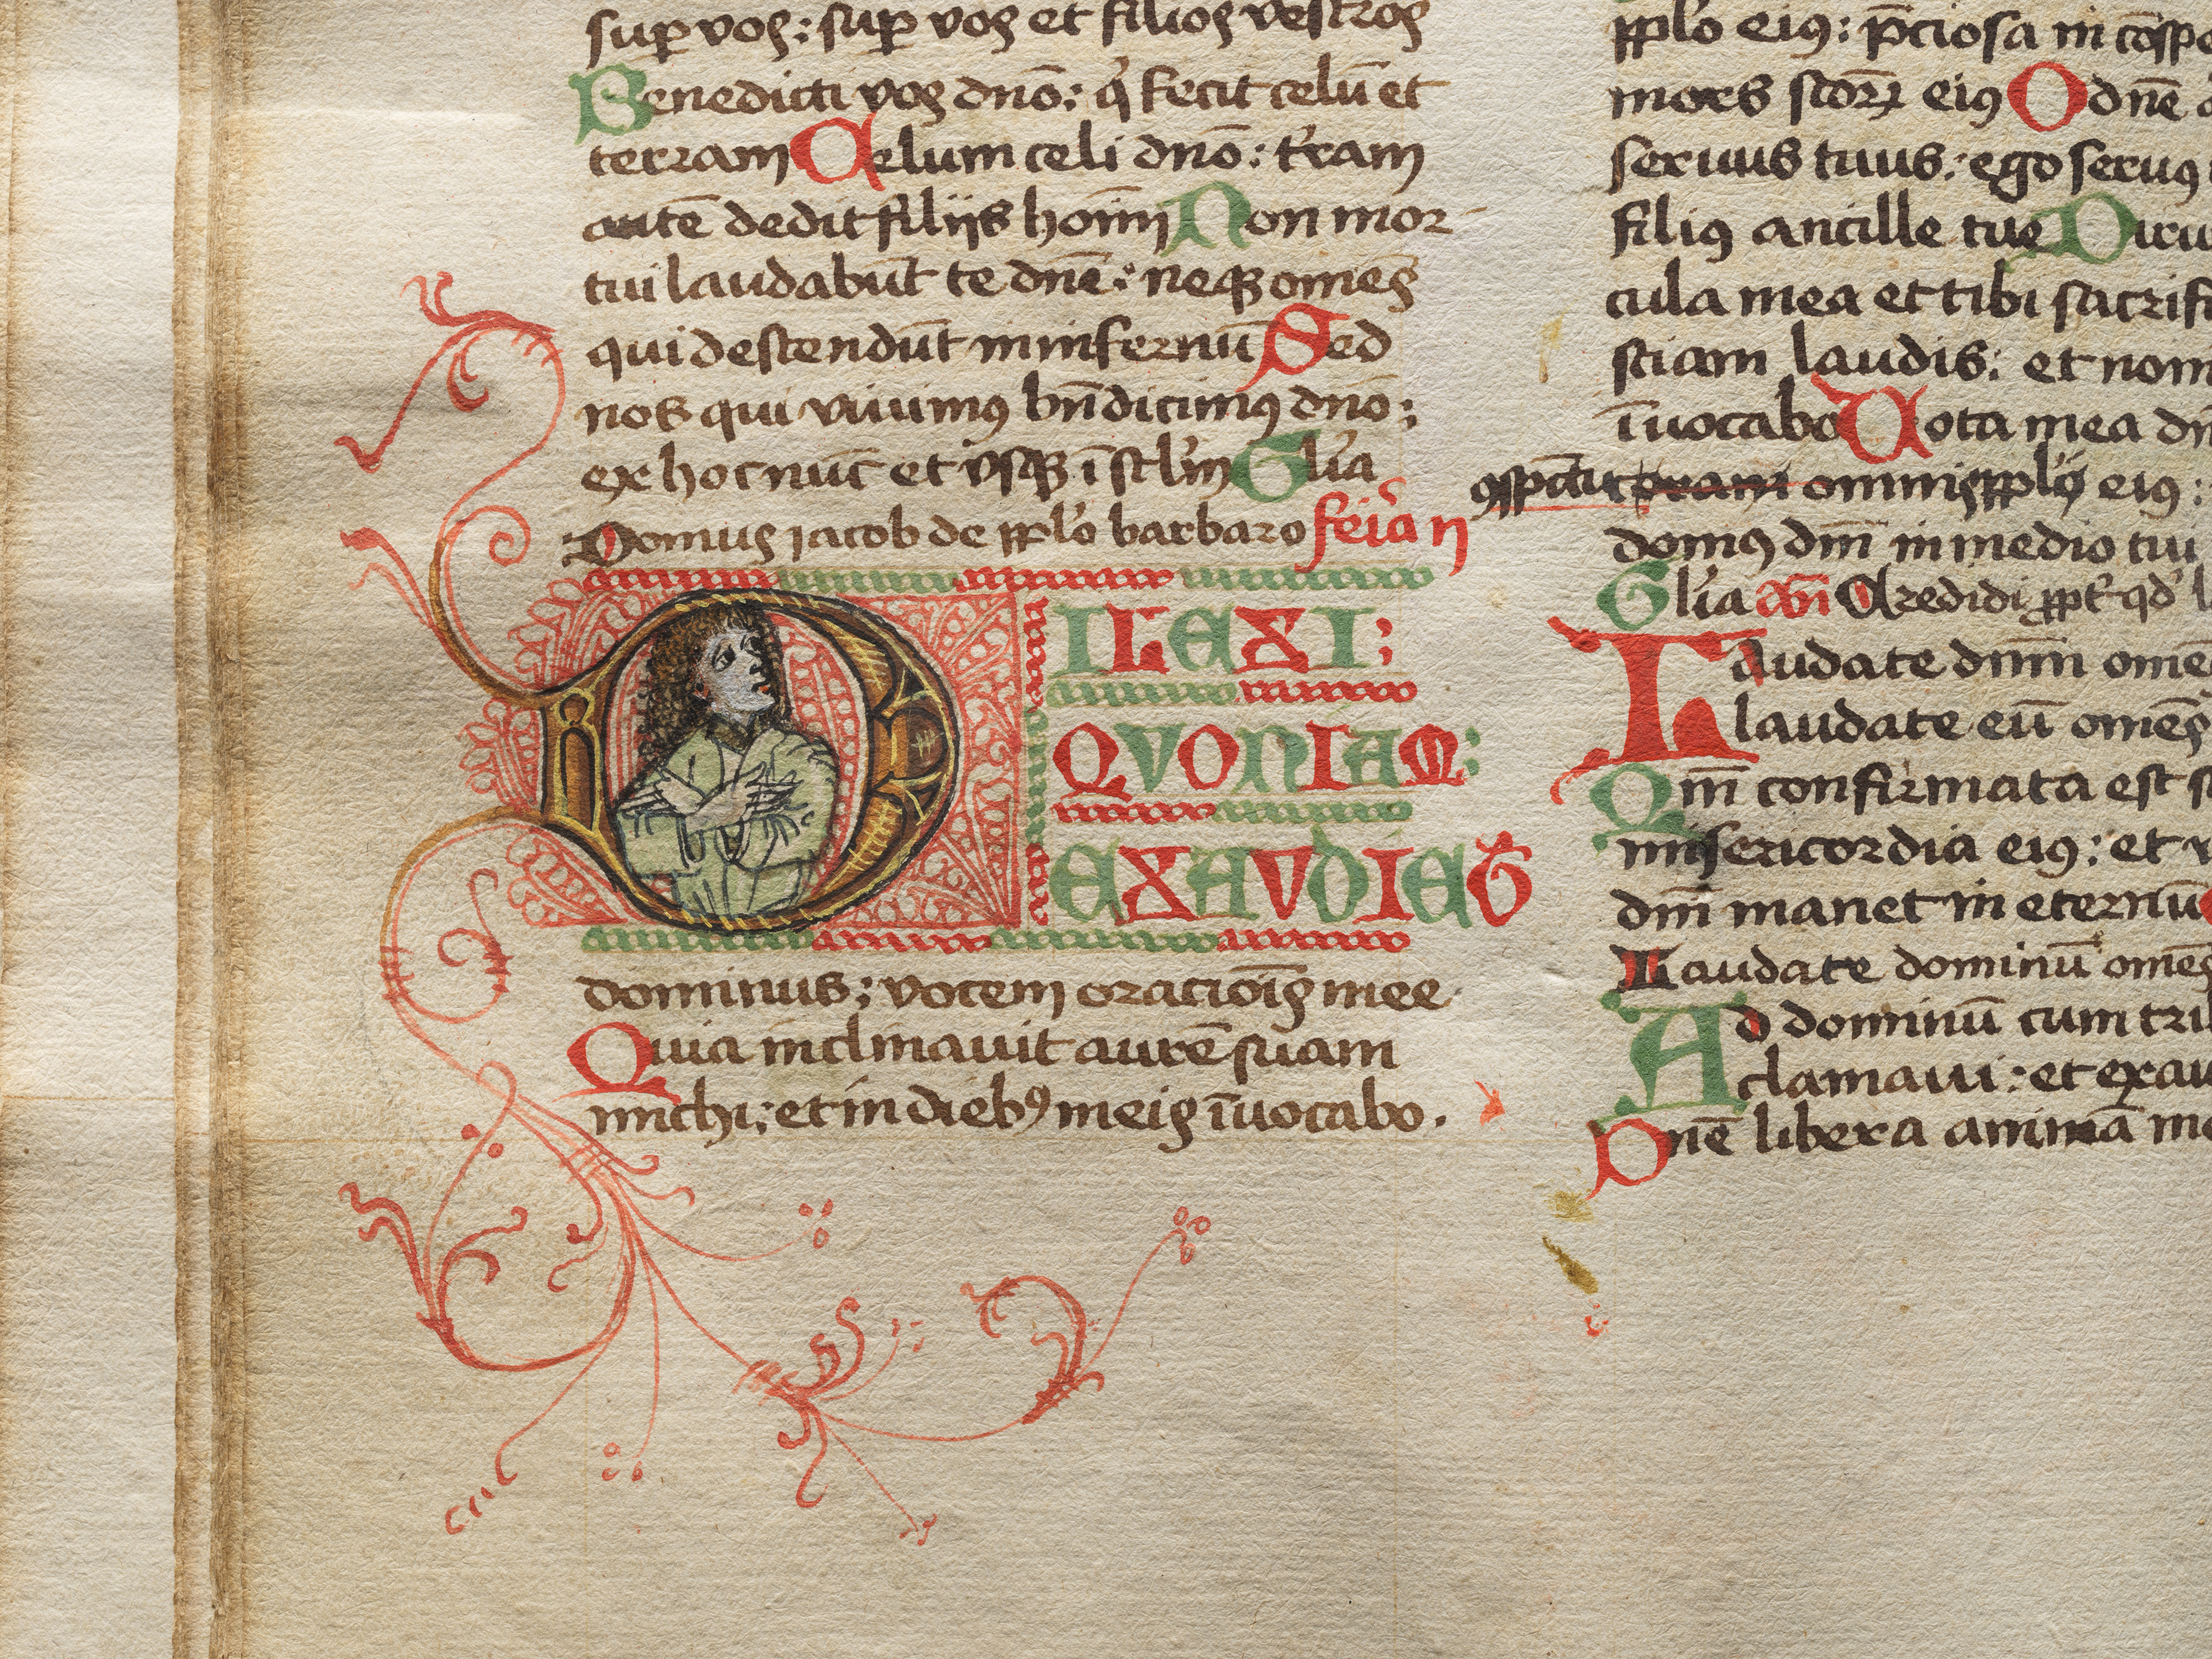 sup vos: sup vos et filios vestros
Benedicti vos dnō: q̇ fecit celū et
terram Celum celi dnō: t̓ram
autē dedit filijs hoīm Non mor
tui laudabūt te dnē: neqꝫ omēs
qui descendūt in infernū Sed
nos qui viuimꝰ bn̄dicimꝰ dnō:
ex hoc nūc et vsqꝫ ī scl̓m Gl̓ia
Domus iacob de ppl̓o barbaro fer̓ia ii
DILEXI:
QVONIAM:
EXAVDIET
dominus: vocem oracioīs mee
Quia inclinauit aurē suam
michi: et in diebꝰ meis īuocabo.
ppl̓o eiꝰ: p̄ciosa in cōsp
mors scōrꝝ eiꝰ O dnē
seruus tuus: ego seruꝰ
filiꝰ ancille tue Diru
cula mea et tibi sacrifi
sciam laudis: et nom
īuocabo Uota mea dn
ꝯspectu omnis ppl̓i eiꝰ:
domꝰ dm̄ in medio tui
Gl̓ia an̄ Credidi ppt̓ qd̓ l
Laudate dnm̄ omē
laudate eū omēs
Qm̄ confirmata est s
misericordia eiꝰ: et v
dm̄ manet in eternū
Laudate dominū omēs
Ad dominū cum tri
clamaui: et exau
Dnē libera animā me